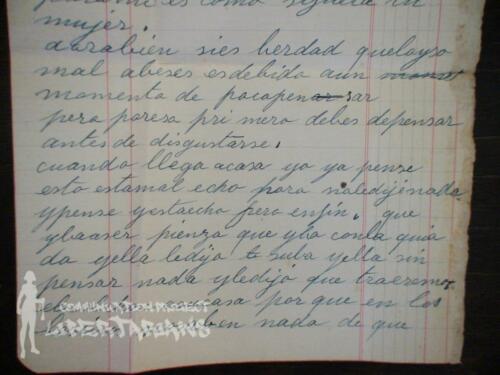 como siguela mi
mujer.
aorabién sies berdad queloyso
mal abeses esdebido aun
momento de pocapensar
pero poreso primero debes depensar
antes de disgustarse,
cuando llega acasa yo ya pense
esto estamal echo pero noledijenada
ypense yestaecho pero enfin, que
ybaaser pienza que yba conla guia
da yella ledijo te suba yella sin
pensar nada yledijo que traeremos
casa por que en los
ben nada de que
COMUNIZATION PROJECT
LIBERTARIANS